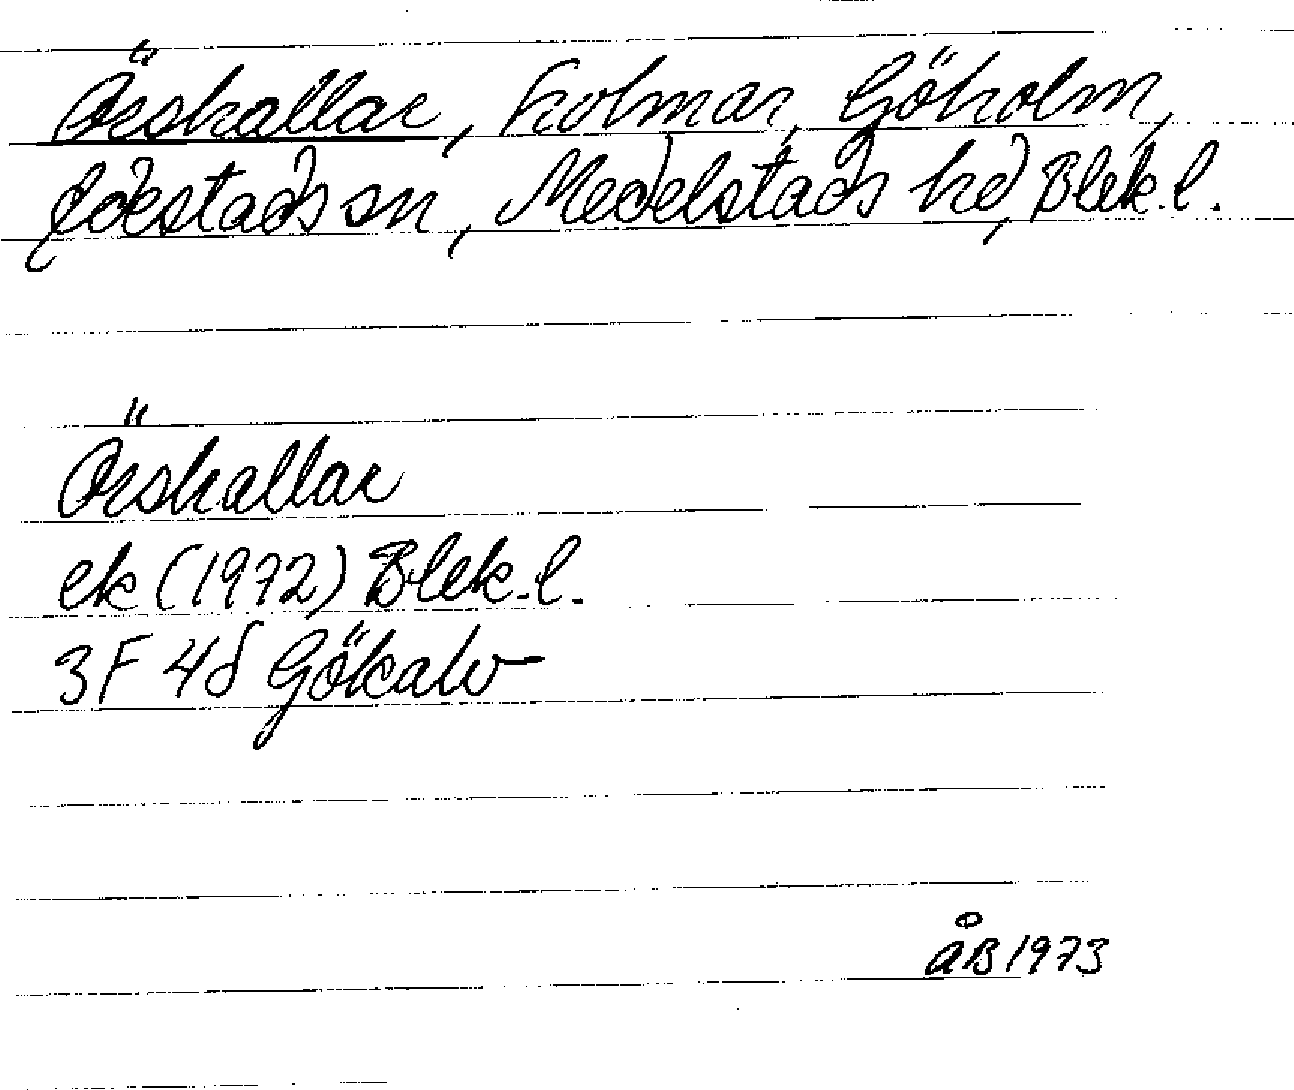 Örskallar, holmar, Göholm,
Edestads sn, Medelstads hd, Blek. l.
Örskallar
ek (1972) Blek. l.
3F 4d Gökalv
ÅB 1973